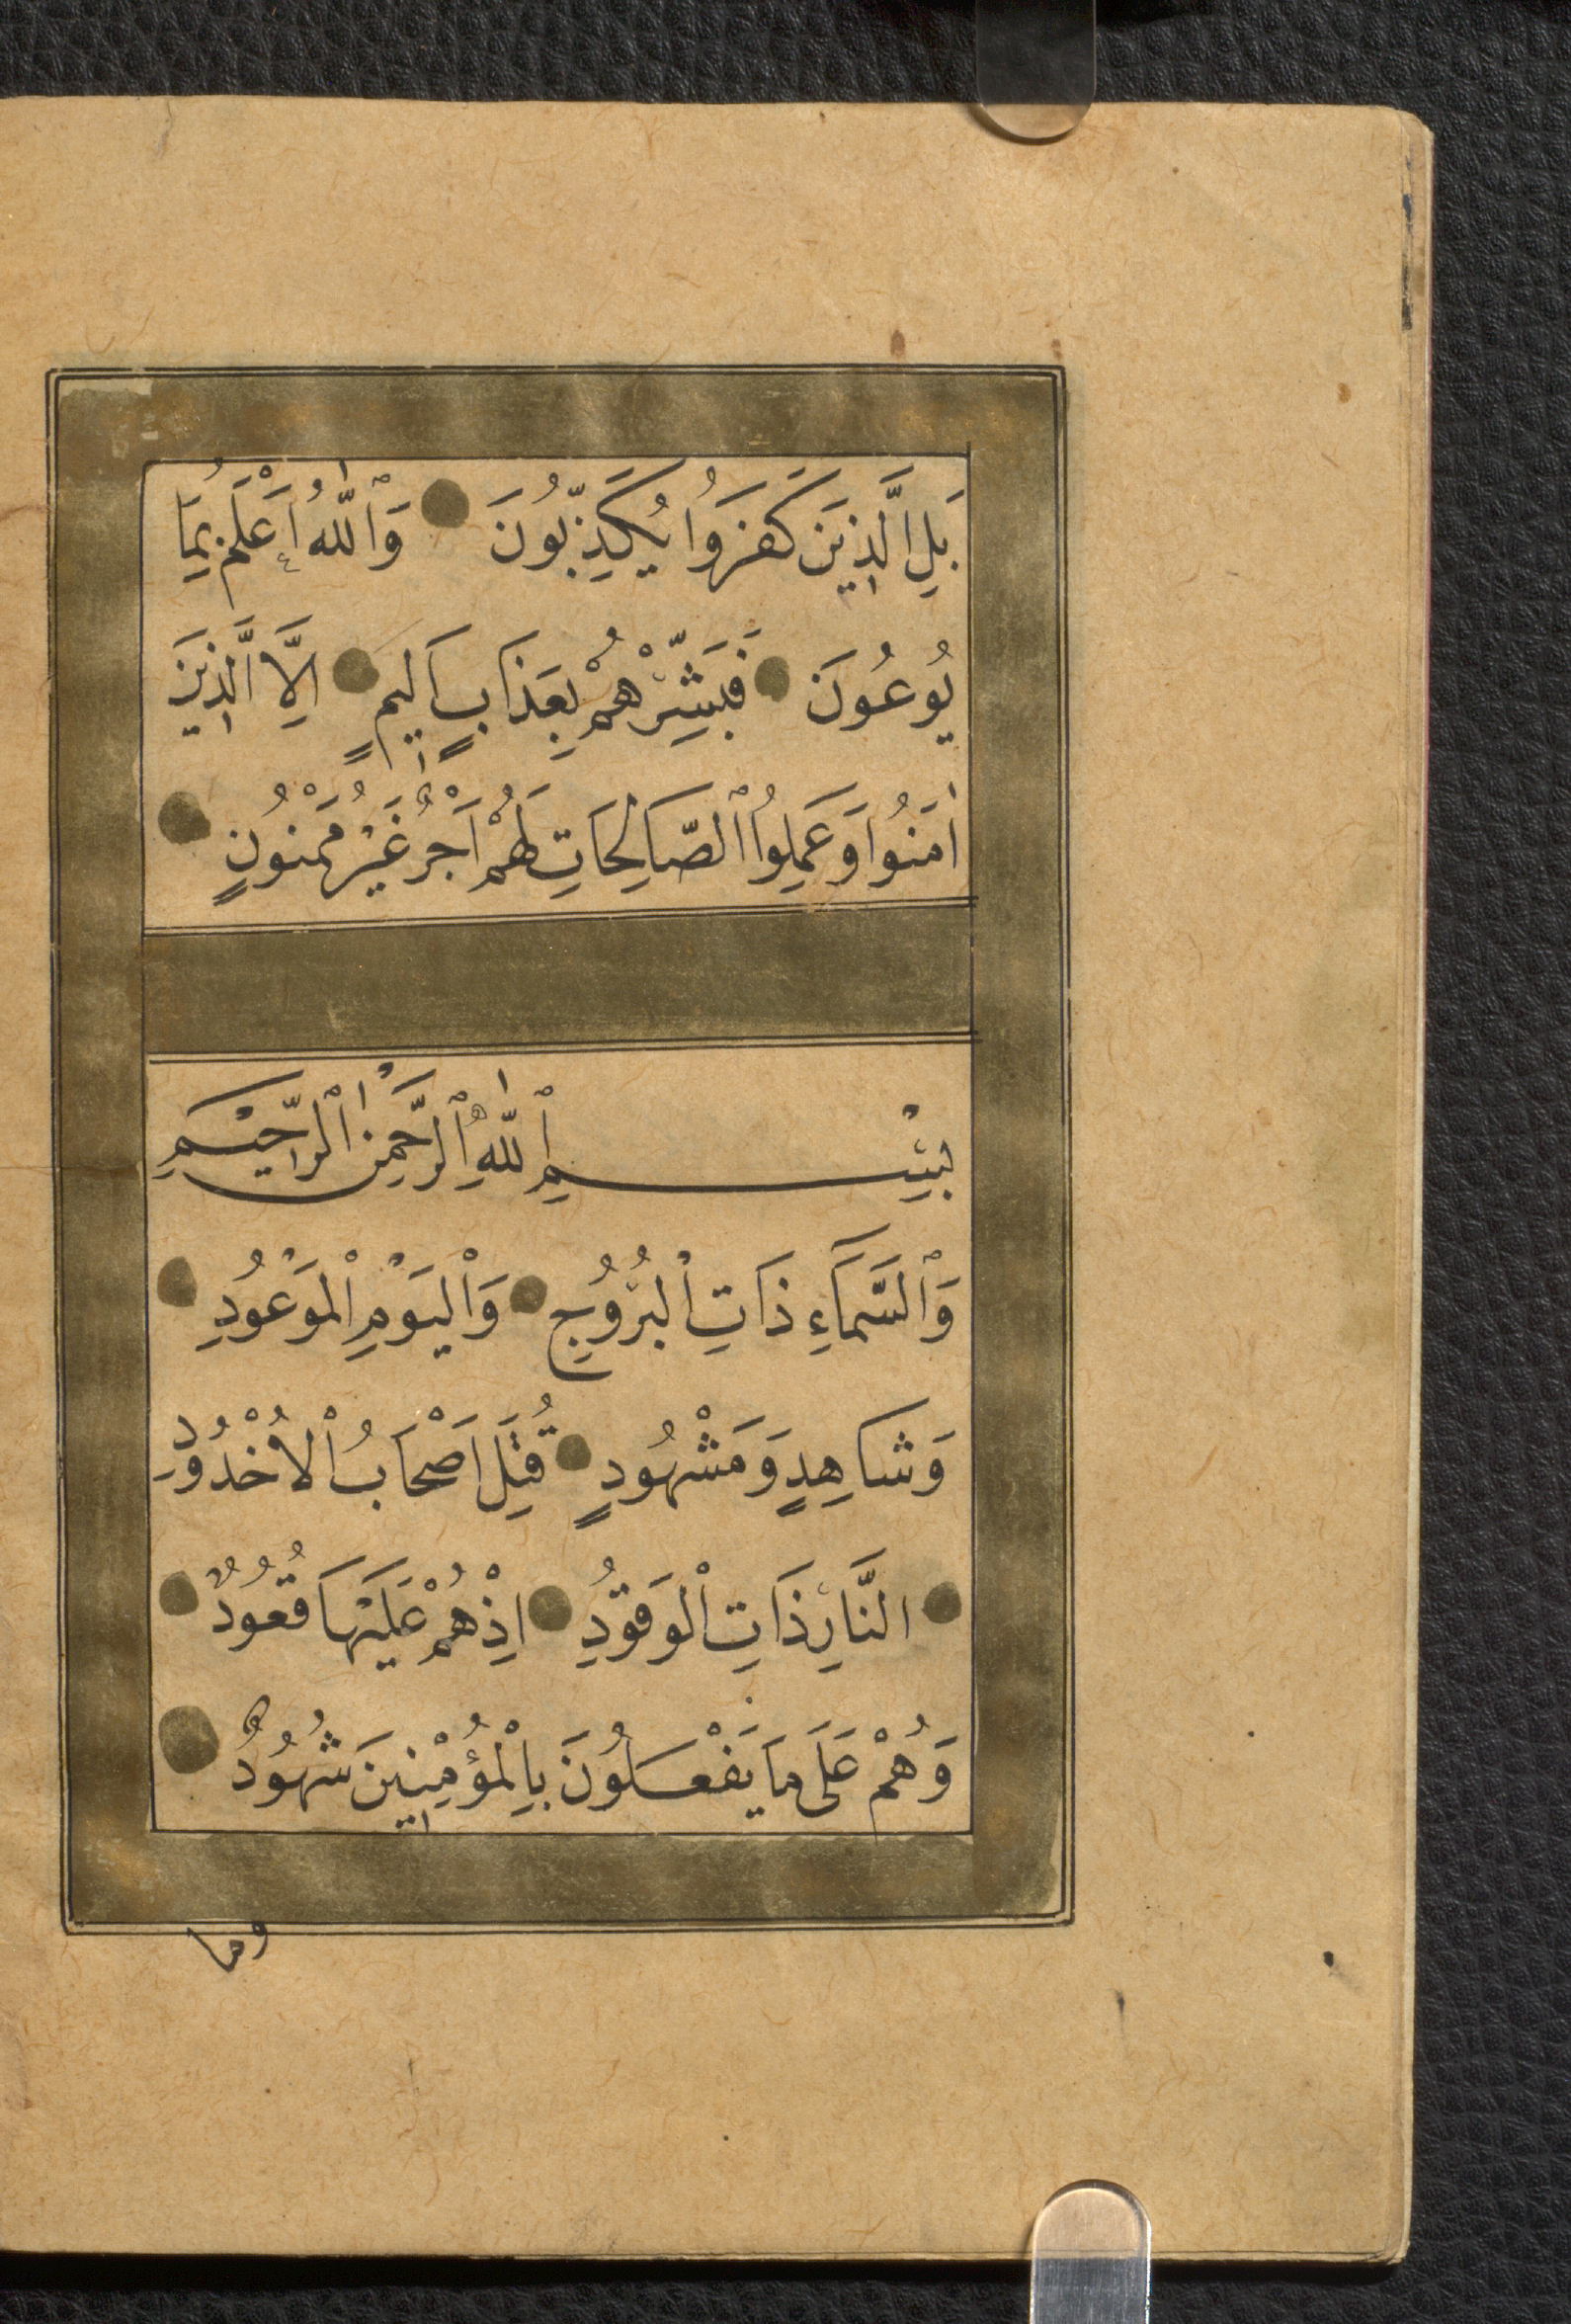 بَلِ الَّذِينَ كَفَرُوا يُكَذِّبُونَ وَٱللّٰهُ اَعْلَمُ بِمَا
يُوعُونَ فَبَشِّرْهُمْ بِعَذَابٍ اَلِيمٍ اِلَّا الَّذِينَ
اٰمَنُوا وَعَمِلُوا ٱلصَّالِحَاتِ لَهُمْ اَجْرٌ غَيْرُ مَمْنُونٍ
بِسْمِ ٱللّٰهِ ٱلرَّحْمٰنِ ٱلرَّحِيْمِ
وَٱلسَّمَاءِ ذَاتِ الْبُرُوجِ وَالْيَوْمِ الْمَوْعُودِ
وَشَاهِدٍ وَمَشْهُودٍ قُتِلَ اَصْحَابُ الْاُخْدُودِ
النَّارِ ذَاتِ الْوَقُودِ اِذْ هُمْ عَلَيْهَا قُعُودٌ
وَهُمْ عَلَى مَا يَفْعَلُونَ بِالْمُؤْمِنِينَ شُهُودٌ
وما